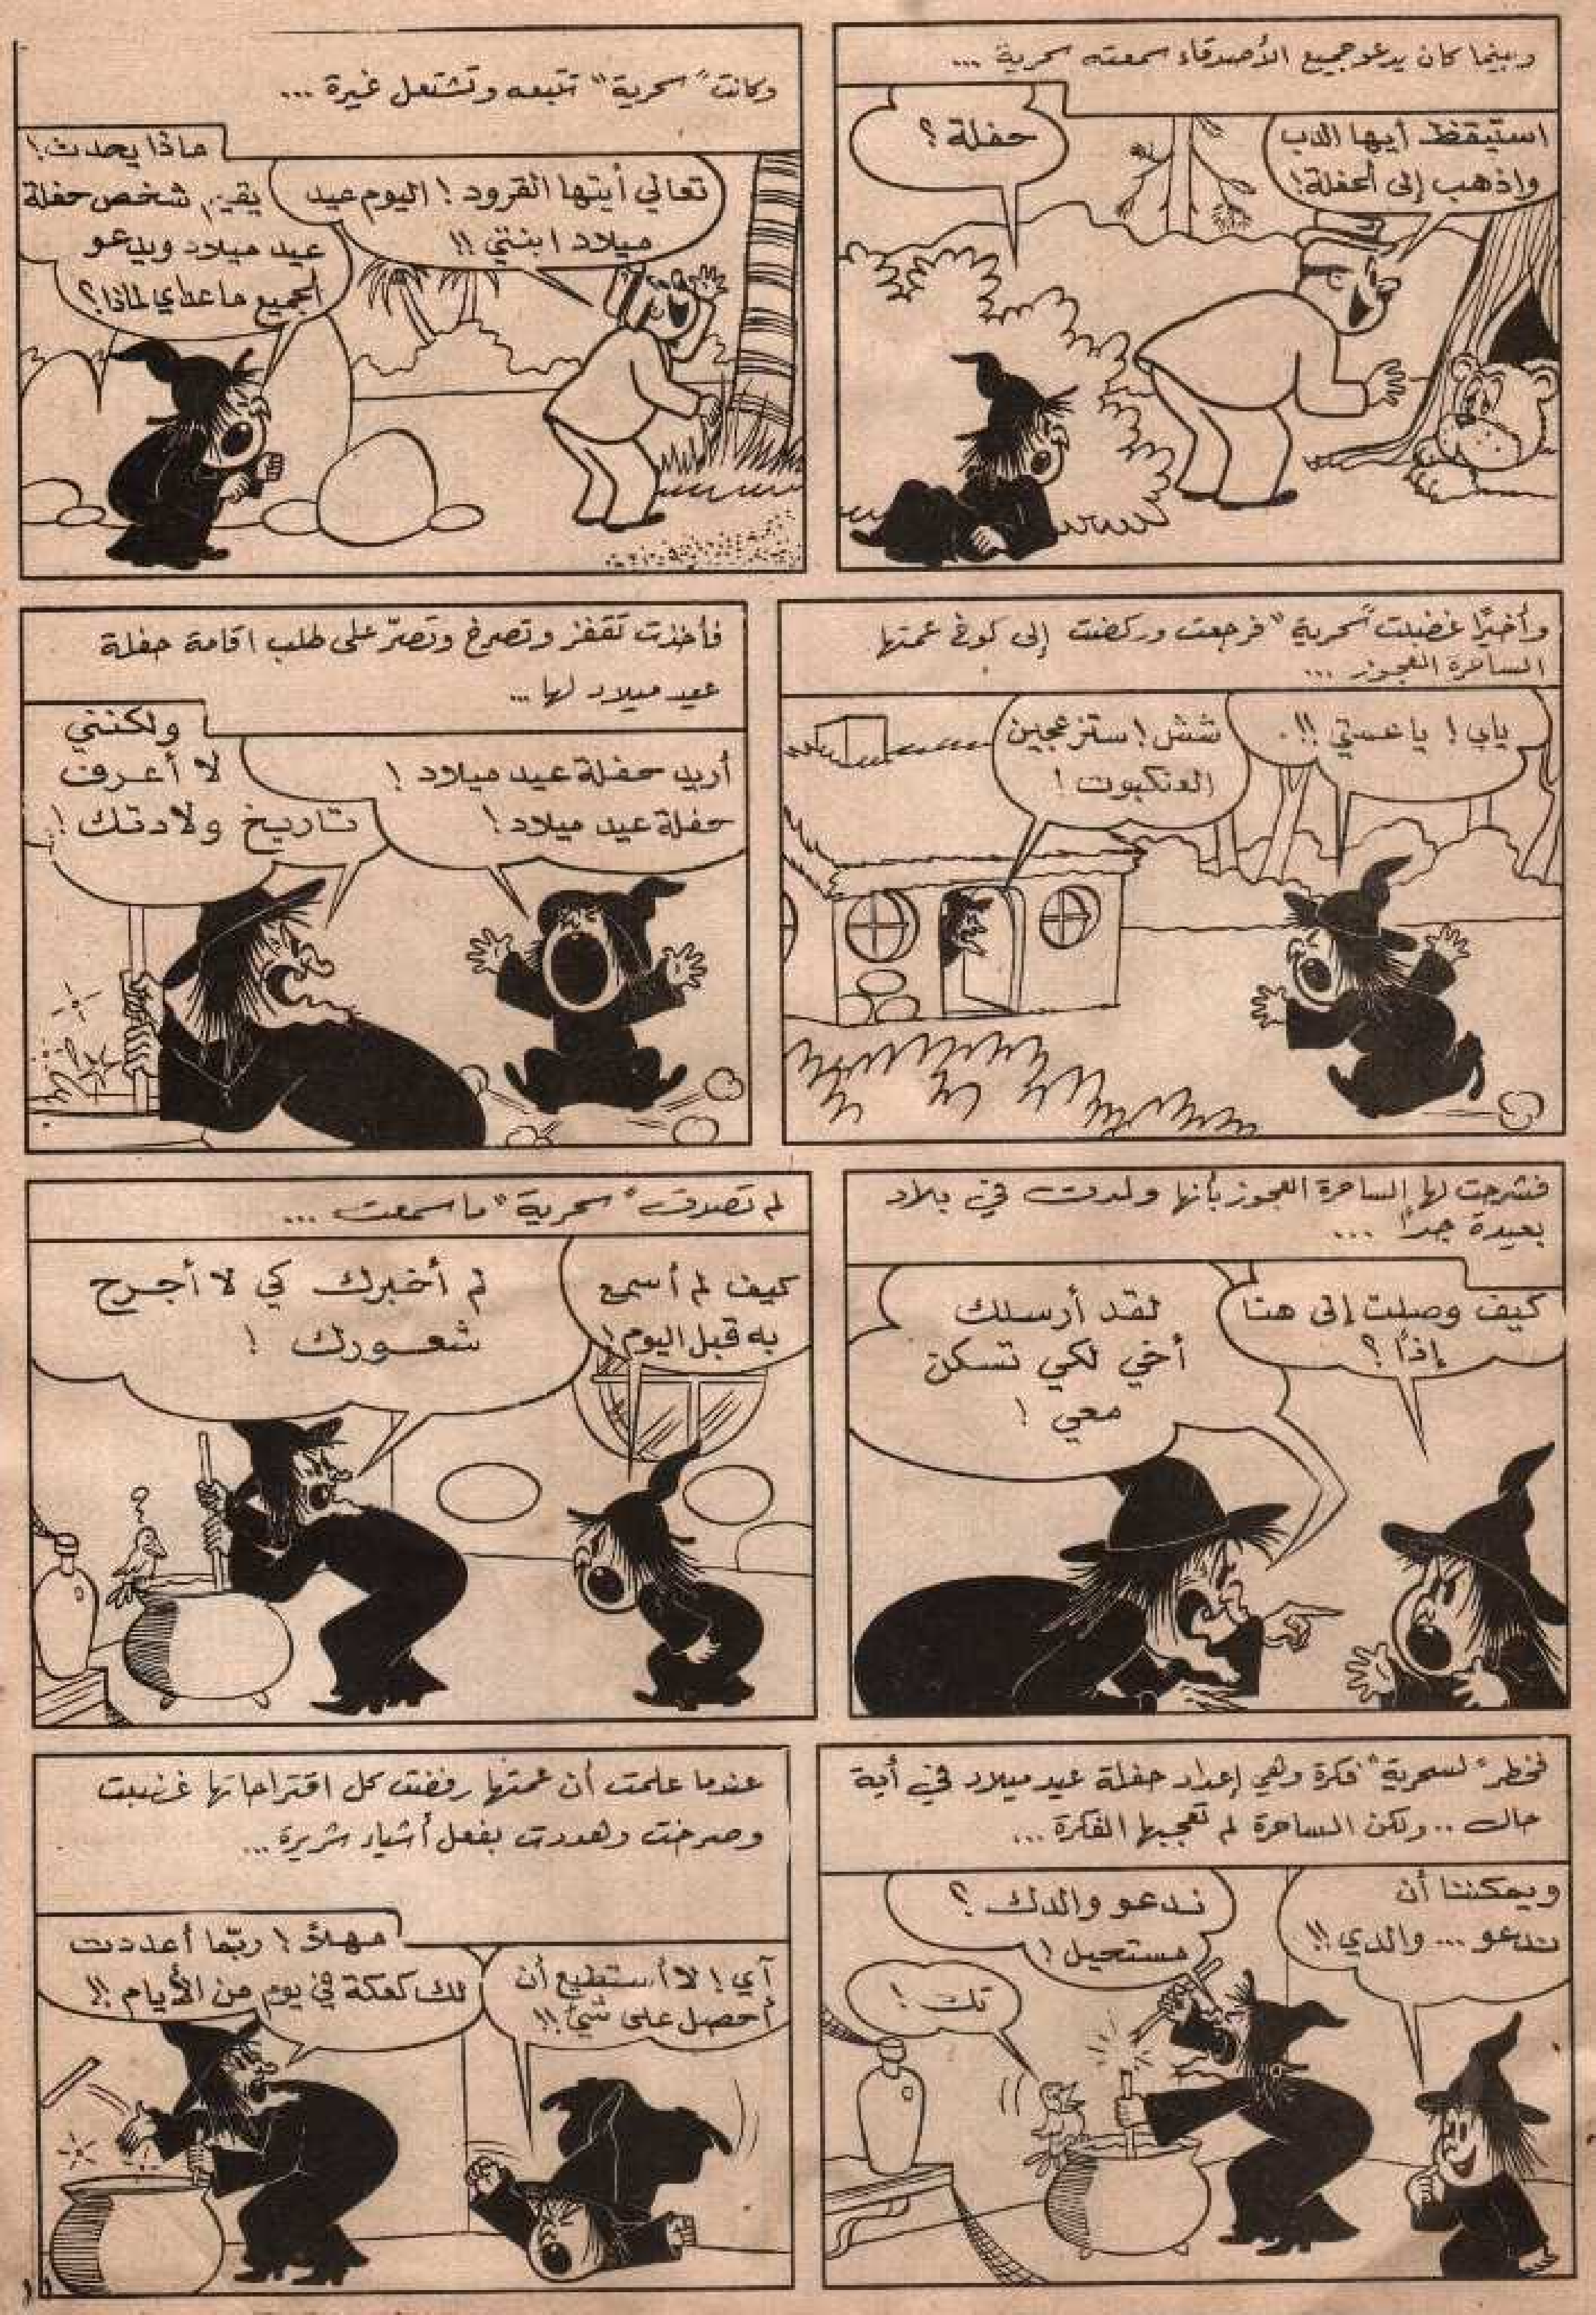 وبينما كان يدعو جميع الأصدقاء سمعته سحرية ...
استيقظ أيها الدب
واذهب إلى الحفلة!
حفلة ؟
وكانت "سحرية" تتبعه وتشتعل غيرة ...
تعالي أيتها القرود ! اليوم عيد
ميلاد ابنتي !!
ماذا يحدث !
يقيم شخص حفلة
عيد ميلاد ويدعو
الجميع ما عداي لماذا؟
وأخيرًا غضبت "سحرية" فرجعت وركضت إلى كوخ عمتها
الساحرة العجوز ...
ياي ! يا عمتي !!
شش ! ستزعجين
العنكبوت !
فأخذت تقفز وتصرخ وتصرّ على طلب اقامة حفلة
عيد ميلاد لها ...
أريد حفلة عيد ميلاد !
حفلة عيد ميلاد !
ولكنني
لا أعرف
تاريخ ولادتك !
فشرحت لها الساحرة العجوز بأنها ولدت في بلاد
بعيدة جدًا ...
كيف وصلت إلى هنا
إذًا ؟
لقد أرسلك
أخي لكي تسكن
معي !
لم تصدق "سحرية" ما سمعت ...
كيف لم أسمع
به قبل اليوم !
لم أخبرك كي لا أجرح
شعورك !
فخطر "لسحرية" فكرة وهي إعداد حفلة عيد ميلاد في أية
حال .. ولكن الساحرة لم تعجبها الفكرة ...
ويمكننا أن
ندعو ... والدي !!
ندعو والدك ؟
مستحيل !
تك !
عندما علمت أن عمتها رفضت كل اقتراحاتها غضبت
وصرخت وهددت بفعل أشياء شريرة ...
آي ! لا أستطيع أن
أحصل على شيء !!
مهلاً ! ربّما أعددت
لك كعكة في يوم من الأيام !!